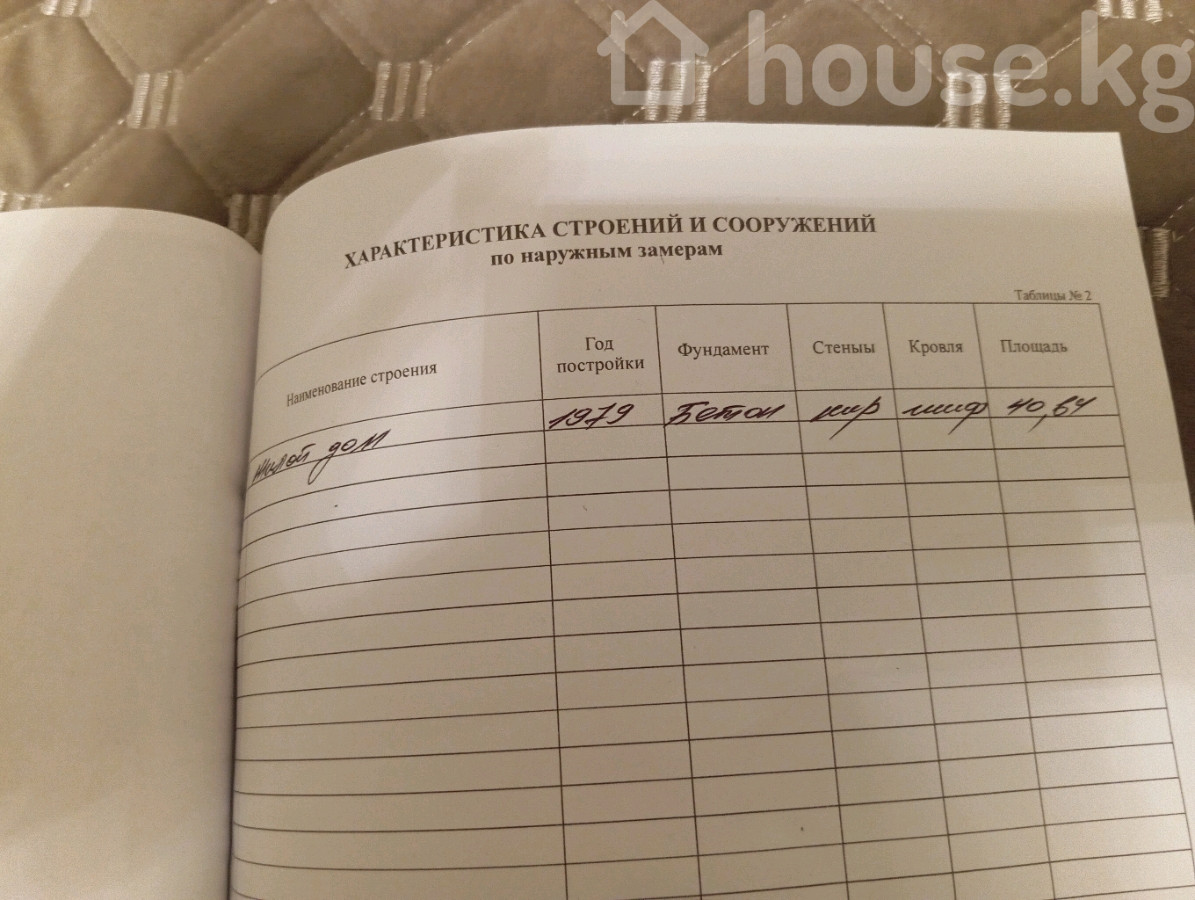 house.kg
ХАРАКТЕРИСТИКА СТРОЕНИЙ И СООРУЖЕНИЙ
по наружным замерам
Таблицы № 2
Наименование строения Год постройки Фундамент Стеныы Кровля Площадь
Жилой дом 1979 Бетон кир шиф 40,64